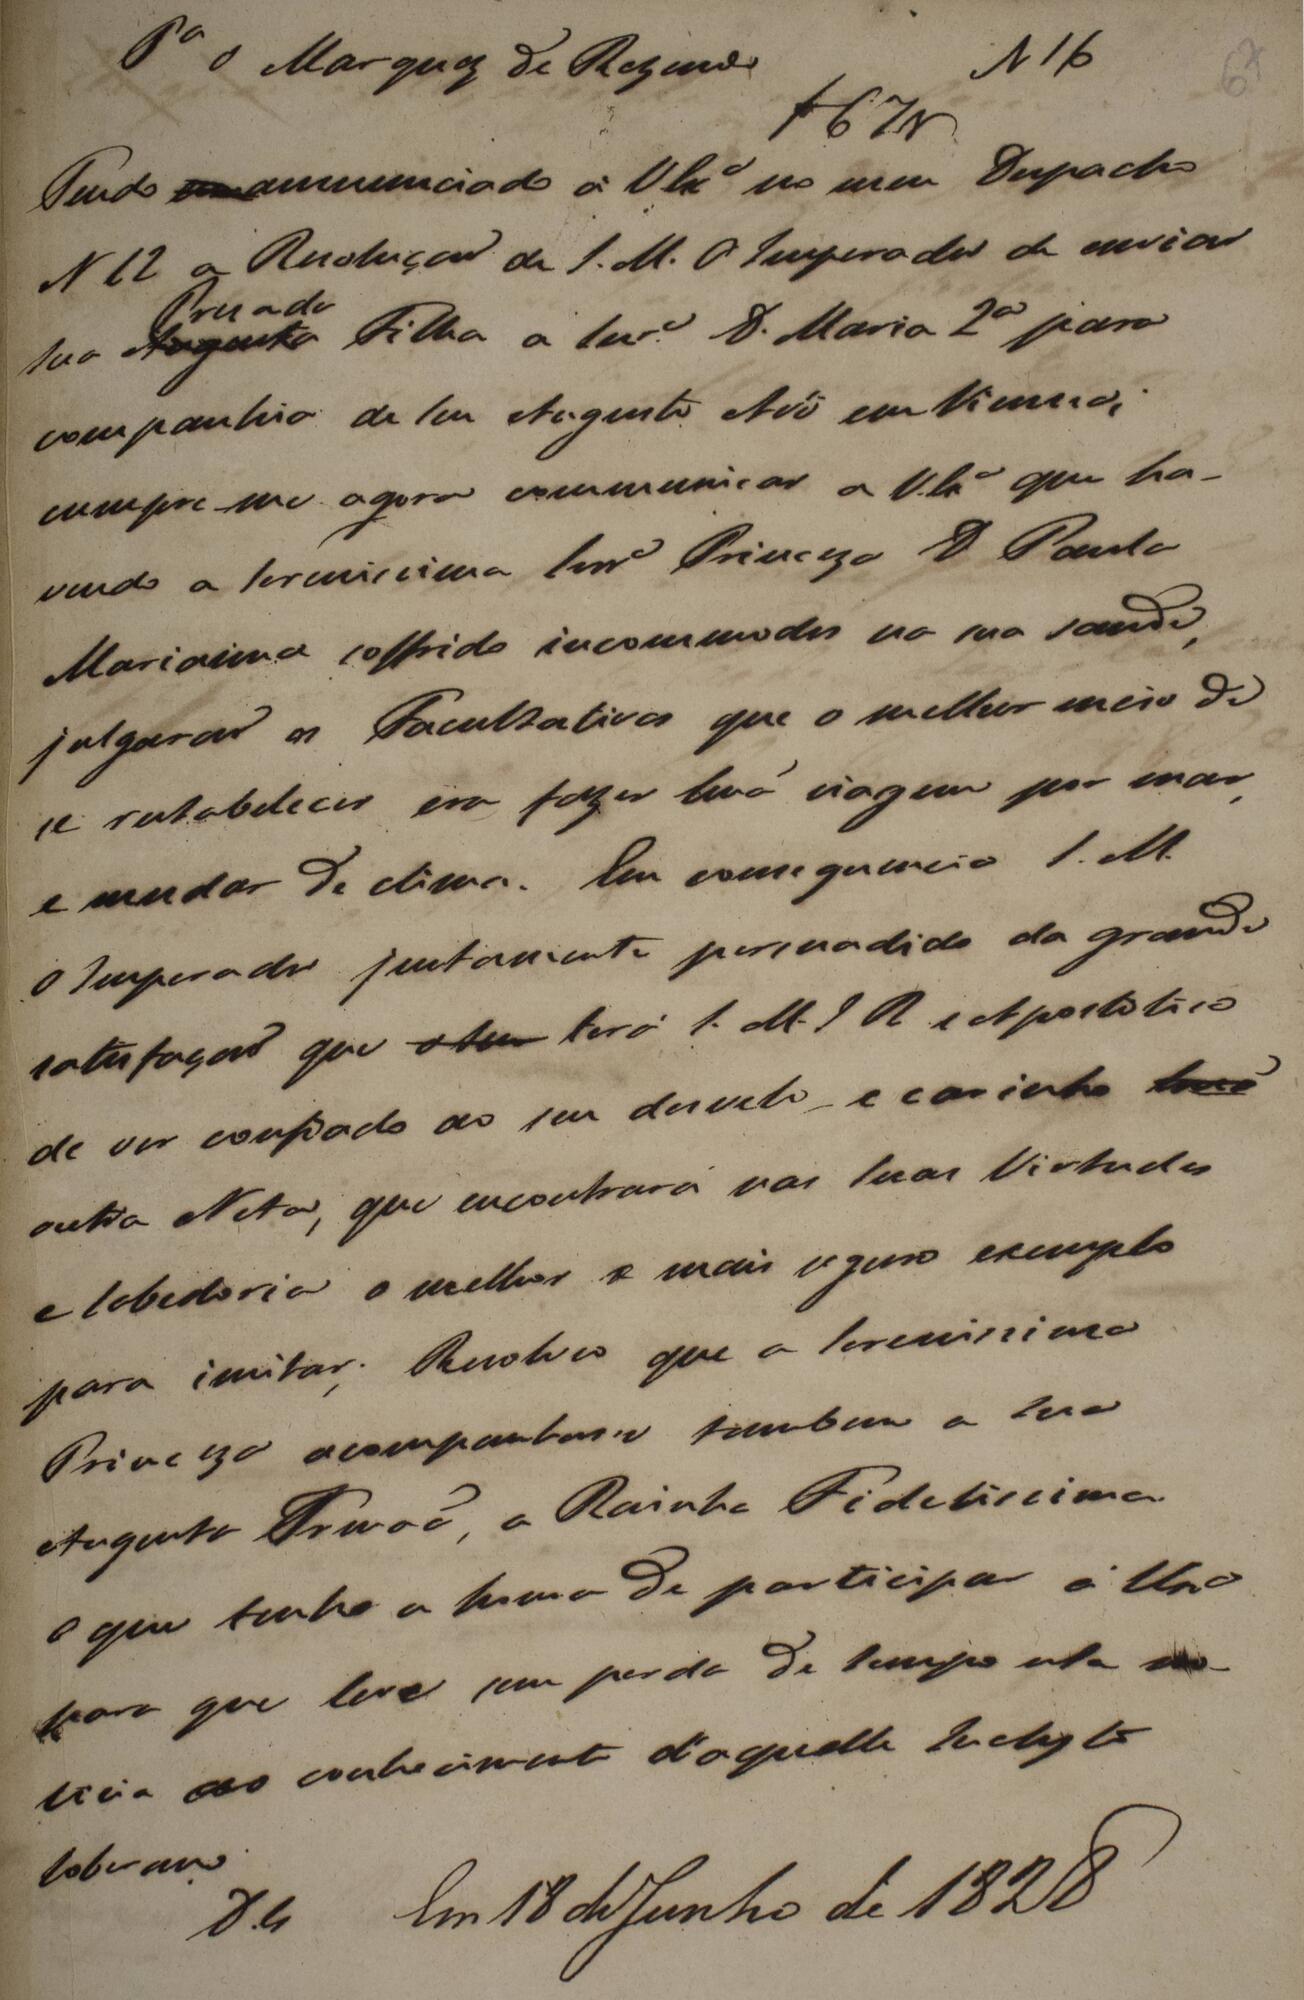 Pª o Marquez de Rezende N 16
67
+ 67v
Tendo annunciado á V Exª no meu Despacho
N 12 a Resoluçaõ de S. M. O Imperador de enviar
Prezada
Sua Augusta Filha a Senrª D. Maria 2ª para
companhia de Seu Augusto Avô em Vienna;
cumpre-me agora communicar a V. Exª que ha-
vendo a Serenissima Senrª Princeza D Paula
Marianna soffrido incommodos na sua saude,
julgaraõ os Facultativos que o melhor meio de
se restabelecer era fazer huã viagem por mar,
e mudar de clima. Em consequencia S. M.
o Imperador justamente persuadido da grande
satisfaçaõ que terá S. M. I R e Apostolica
de ver confiado ao seu desvelo e carinho huã
outra Neta, que encontrará nas Suas Virtudes
e Sabedoria o melhor e mais seguro exemplo
para imitar; Resolveo que a Serenissima
Princeza acompanhasse tambem a Sua
Augusta Irmaã, a Rainha Fidelissima
O que tenho a honra de participar á V Exª
para que leve sem perda de tempo esta no-
ticia ao conhecimento d'aquelle Inclyto
Soberano.
D. G. Em 18 de Junho de 1828